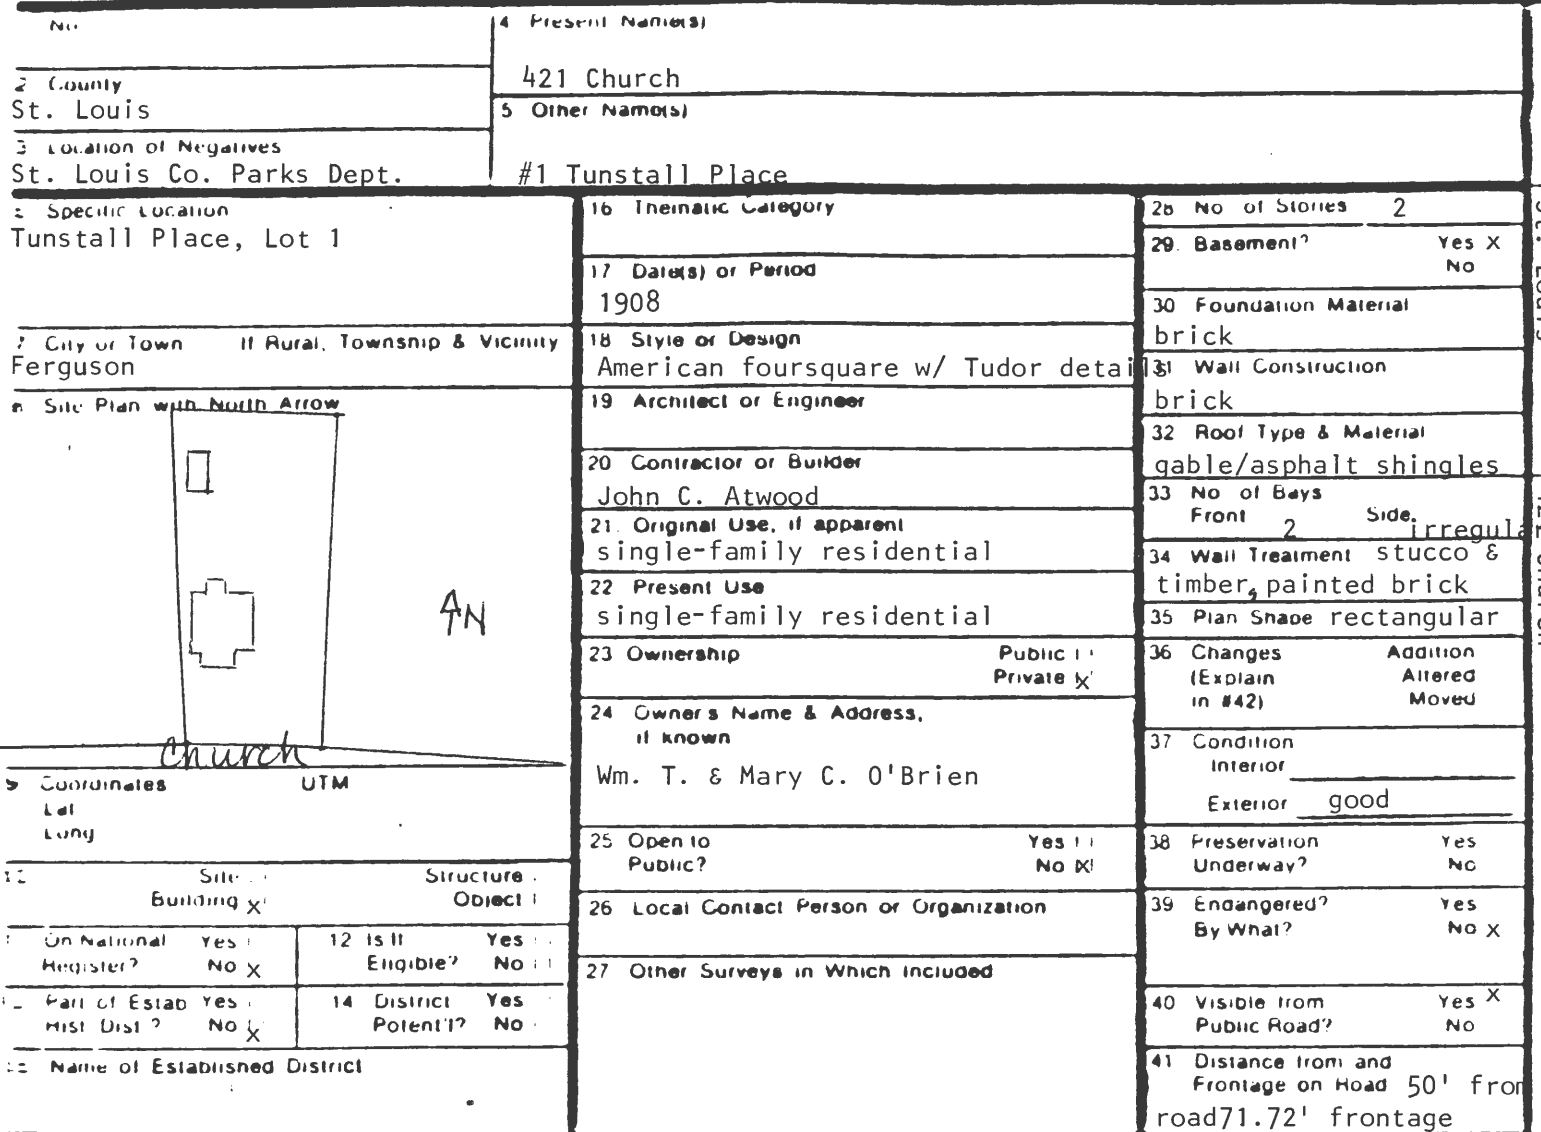 No.
4 Present Name(s)
421 Church
2 County
St. Louis
5 Other Name(s)
#1 Tunstall Place
3 Location of Negatives
St. Louis Co. Parks Dept.
Specific Location
Tunstall Place, Lot 1
7 City or Town If Rural, Township & Vicinity
Ferguson
8 Site Plan with North Arrow
N
Church
9 Coordinates UTM
Lat
Long
Site Structure
Building X Object
On National Register? Yes No X
12 Is It Eligible? Yes No
Part of Estab Hist Dist? Yes No X
14 District Potent'l? Yes No
Name of Established District
16 Thematic Category
17 Date(s) or Period
1908
18 Style or Design
American foursquare w/ Tudor details
19 Architect or Engineer
20 Contractor or Builder
John C. Atwood
21. Original Use, if apparent
single-family residential
22 Present Use
single-family residential
23 Ownership Public
Private X
24 Owner's Name & Address,
if known
Wm. T. & Mary C. O'Brien
25 Open to Yes
Public? No X
26 Local Contact Person or Organization
27 Other Surveys in Which Included
28 No of Stories 2
29. Basement? Yes X
No
30 Foundation Material
brick
31 Wall Construction
brick
32 Roof Type & Material
gable/asphalt shingles
33 No of Bays
Front 2 Side irregula
34 Wall Treatment stucco &
timber, painted brick
35 Plan Shape rectangular
36 Changes Addition
(Explain Altered
in #42) Moved
37 Condition
Interior
Exterior good
38 Preservation Yes
Underway? No
39 Endangered? Yes
By What? No X
40 Visible from Yes X
Public Road? No
41 Distance from and
Frontage on Road 50' from
road71.72' frontage